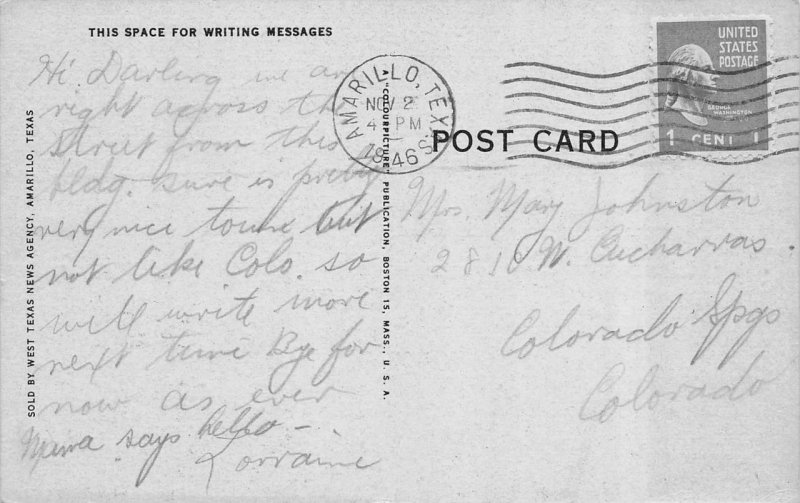 THIS SPACE FOR WRITING MESSAGES
Hi Darling we are
right across the
street from this
bldg. sure is pretty
very nice town but
not like Colo. so
will write more
next time Bye for
now as ever
Mama says hello –
Lorraine
SOLD BY WEST TEXAS NEWS AGENCY, AMARILLO, TEXAS
A "COLOURPICTURE" PUBLICATION, BOSTON 15, MASS., U. S. A.
AMARILLO, TEXAS
NOV 2
4 PM
1946
POST CARD
UNITED
STATES
POSTAGE
GEORGE
WASHINGTON
1 CENT 1
Mrs. Mary Johnston
2810 W. Cucharras.
Colorado Spgs
Colorado